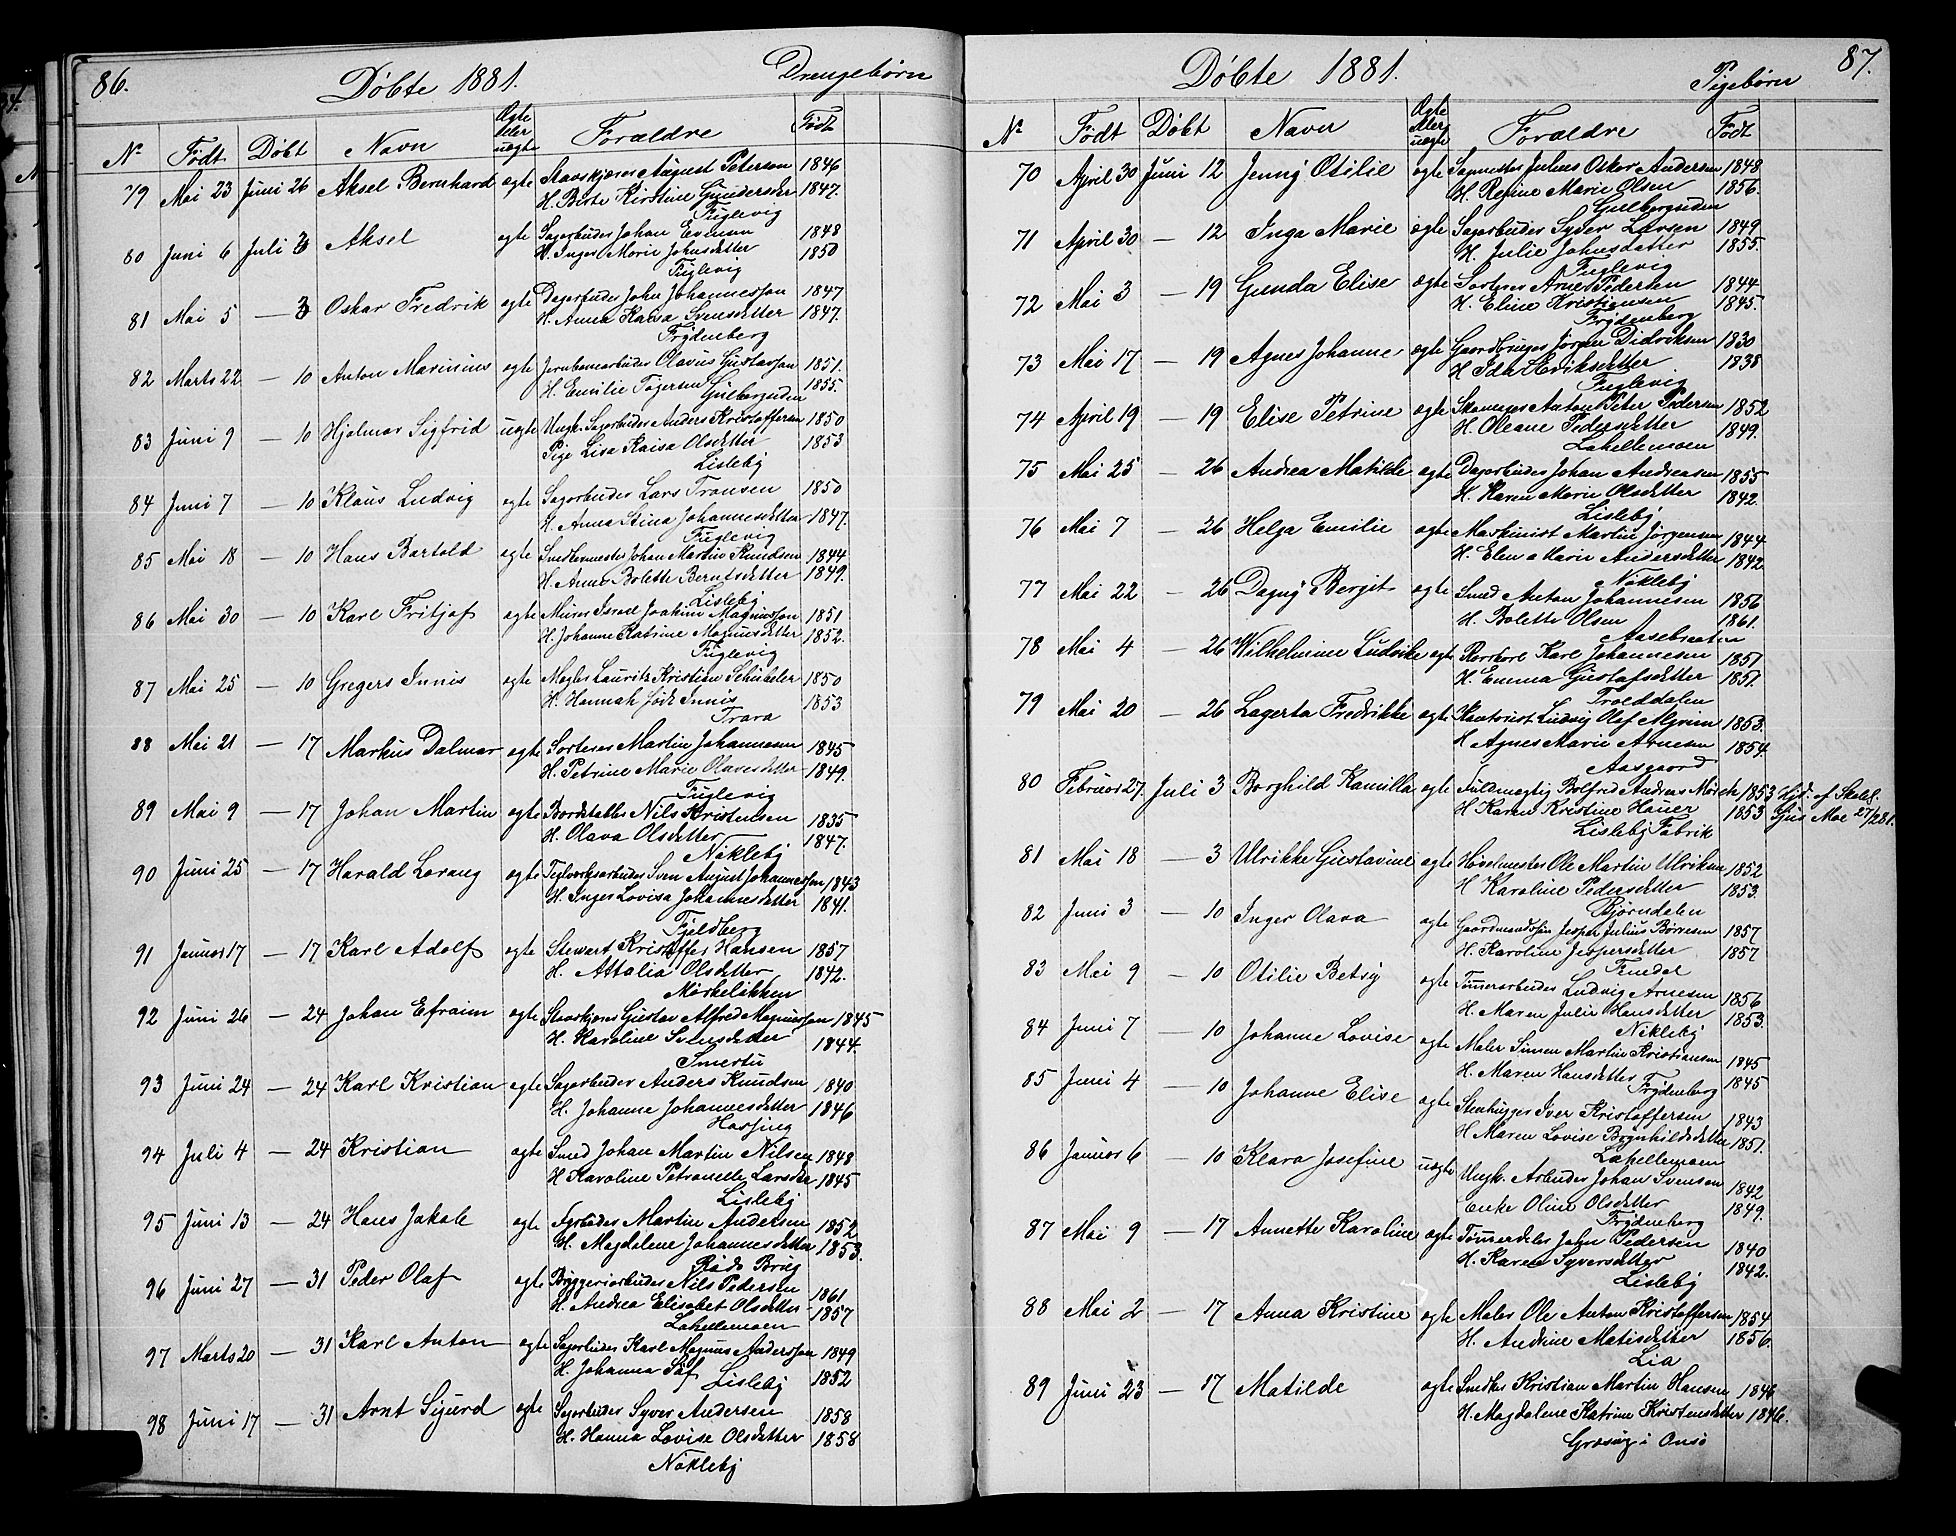 86.
Döbte 1881.
Drengebørn
Nº Født Døbt Navn Ægte eller uægte Forældre Født
79 Mai 23 Juni 26 Aksel Bernhard ægte August Peterson 1846
H. Berte Kirstine Gundersdter 1847.
Fuglevig
80 Juni 6 Juli 3 Aksel ægte Sagarbeider Johan Evensen 1848
H. Inger Marie Johnsdatter 1850
Fuglevig
81 Mai 5 — 3 Oskar Fredrik ægte Dagarbeider John Johannesson 1847
H. Anna Kaisa Svensdatter 1847.
Frydenberg
82 Marts 22 — 10 Anton Marinius ægte Jernbanearbeider Olavus Gustavson 1851.
H. Emilie Tøgersen 1855.
Gulbergunden
83 Juni 9 — 10 Hjalmar Sigfrid uægte Ungk. Sagarbeider Anders Kristoffersen 1850
Pige Lisa Kaisa Olsdatter 1853
Lisleby
84 Juni 7 — 10 Klaus Ludvig ægte Sagarbeider Lars Tronsen 1850
H. Anna Stina Johannesdatter 1847.
Fuglevig
85 Mai 18 — 10 Hans Bartold ægte Smedemester Johan Martin Knudsen 1844
H. Anne Bolette Berntsdatter 1849.
Lisleby
86 Mai 30 — 10 Karl Fritjof ægte Murer Israel Joakim Magnusson 1851
H. Johanne Katrine Magnusdatter 1852.
Fuglevig
87 Mai 25 — 10 Gregers Innis ægte Mægler Lauritz Kristian Schübeler 1850
H. Hannah født Innis 1853
Trara
88 Mai 21 — 17 Markus Dalmar ægte Sorterer Martin Johannesen 1845
H. Petrine Marie Olavesdatter 1849.
Fuglevig
89 Mai 9 — 17 Johan Martin ægte Bordstabler Nils Kristensen 1835
H. Olava Olsdatter 1847.
Nøkleby
90 Juni 25 — 17 Harald Lorang ægte Teglverksarbeider Sven August Johannesson 1843
H. Inger Lovisa Johannesdatter 1841.
Fjeldberg
91 Januar 17 — 17 Karl Adolf ægte Stewert Kristoffer Hansen 1857
H. Attalia Olsdatter 1842.
Mørkeløkken
92 Juni 26 — 24 Johan Efraim ægte Gustav Alfred Magnusson 1845
H. Karoline Svensdatter 1844.
Smertu
93 Juni 24 — 24 Karl Kristian ægte Sagarbeider Anders Knudsen 1840
H. Johanne Johannesdatter 1846
Hassing
94 Juli 4 — 24 Kristian ægte Smed Johan Martin Nilsen 1848
H. Karoline Petronelle Larsdter 1845
Lisleby
95 Juni 13 — 24 Hans Jakob ægte Martin Andersen 1852
H. Magdalene Johannesdatter 1853.
Rads Brug
96 Juni 27 — 31 Peder Olaf ægte Bryggeriarbeider Nils Pedersen 1861
H. Andrea Elisabet Olsdatter 1857
Lahellemoen
97 Marts 20 — 31 Karl Anton ægte Sagarbeider Karl Magnus Andersson 1849
H. Johanna Säf 1852
Lisleby
98 Juni 17 — 31 Arnt Sigurd ægte Sagarbeider Syver Andersen 1858
H. Hanna Lovise Olsdatter 1858
Nøkleby
87.
Døbte 1881.
Pigebørn
Nº Født Døbt Navn Ægte eller uægte Forældre Født
70 April 30 Juni 12 Jenny Otilie ægte Sagmester Julius Oskar Andersen 1848
H. Regine Marie Olsen 1856.
Gulbergunden
71 April 30 — 12 Inga Marie ægte Sagarbeider Syver Larsen 1849
H. Julie Johnsdatter 1855.
Fuglevig
72 Mai 3 — 19 Gunda Elise ægte Sorterer Arne Pedersen 1844
H. Eline Kristiansen 1845.
Frydenberg
73 Mai 17 — 19 Agnes Johanne ægte Gaardbruger Jørgen Didriksen 1830
H. Ida Eriksdatter 1838
Fuglevig
74 April 19 — 19 Elise Petrine ægte Skomager Anton Peter Pedersen 1852
H. Oleane Pedersdatter 1849.
Lahellemoen
75 Mai 25 — 26 Andrea Matilde ægte Dagarbeider Johan Andreasen 1855
H. Karen Marie Olsdatter 1842.
Lisleby
76 Mai 7 — 26 Helga Emilie ægte Maskinist Martin Jørgensen 1844
H. Elen Marie Andersdatter 1842
Nøkleby
77 Mai 22 — 26 Dagny Bergit ægte Smed Anton Johannesen 1856
H. Bolette Olsen 1861.
Aasebraaten
78 Mai 4 — 26 Wilhelmine Ludvike ægte Karl Johannesen 1851
H. Emma Gustafsdatter 1851.
Trolddalen
79 Mai 20 — 26 Lagerta Fredrikke ægte Kontorist Ludvig Olaf Mgrim 1853.
H. Agnes Marie Arnesen 1854.
Aasgaard
80 Februar 27. Juli 3 Borghild Kamilla ægte Fuldmægtig Bolfred Andreas Mørch 1853 Hjd. af Skolel.
H. Karen Kristine Hauer 1853 Gus Moe 27/2 81.
Lisleby Fabrik
81 Mai 18 — 3 Ulrikke Gustavine ægte Høvelmester Ole Martin Ulriksen 1852
H. Karoline Pedersdatter 1853.
Bjørndalen
82 Juni 3 — 10 Inger Olava ægte Gaardmandssøn Jesper Julius Børresen 1857
H. Karoline Jespersdatter 1857
83 Mai 9 — 10 Otilie Betsy ægte Tømmerarbeider Ludvig Arnesen 1856
H. Maren Julie Hansdatter 1853.
Nøkleby
84 Juni 7 — 10 Johanne Lovise ægte Maler Simen Martin Kristiansen 1845
H. Maren Hansdatter 1845
Frydenberg
85 Juni 4 — 10 Johanne Elise ægte Stenhugger Iver Kristoffersen 1843
H. Maren Lovise Brynhildsdatter 1851.
Lahellemoen
86 Januar 6 — 10 Klara Josefine uægte Ungk. Arbeider Johan Svensen 1842
Enke Oline Olsdatter 1849.
Frydenberg
87 Mai 9 — 17 Annette Karoline ægte Tømmerdeler John Pedersen 1840
H. Karen Syversdatter 1842.
Lisleby
88 Mai 2 — 17 Anna Kristine ægte Maler Ole Anton Kristoffersen 1854
H. Andrine Matisdatter 1856.
Lia
89 Juni 23 — 17 Matilde ægte Snedker Kristian Martin Hansen 1846
H. Magdalene Katrine Kristensdatter 1846.
i Onsø